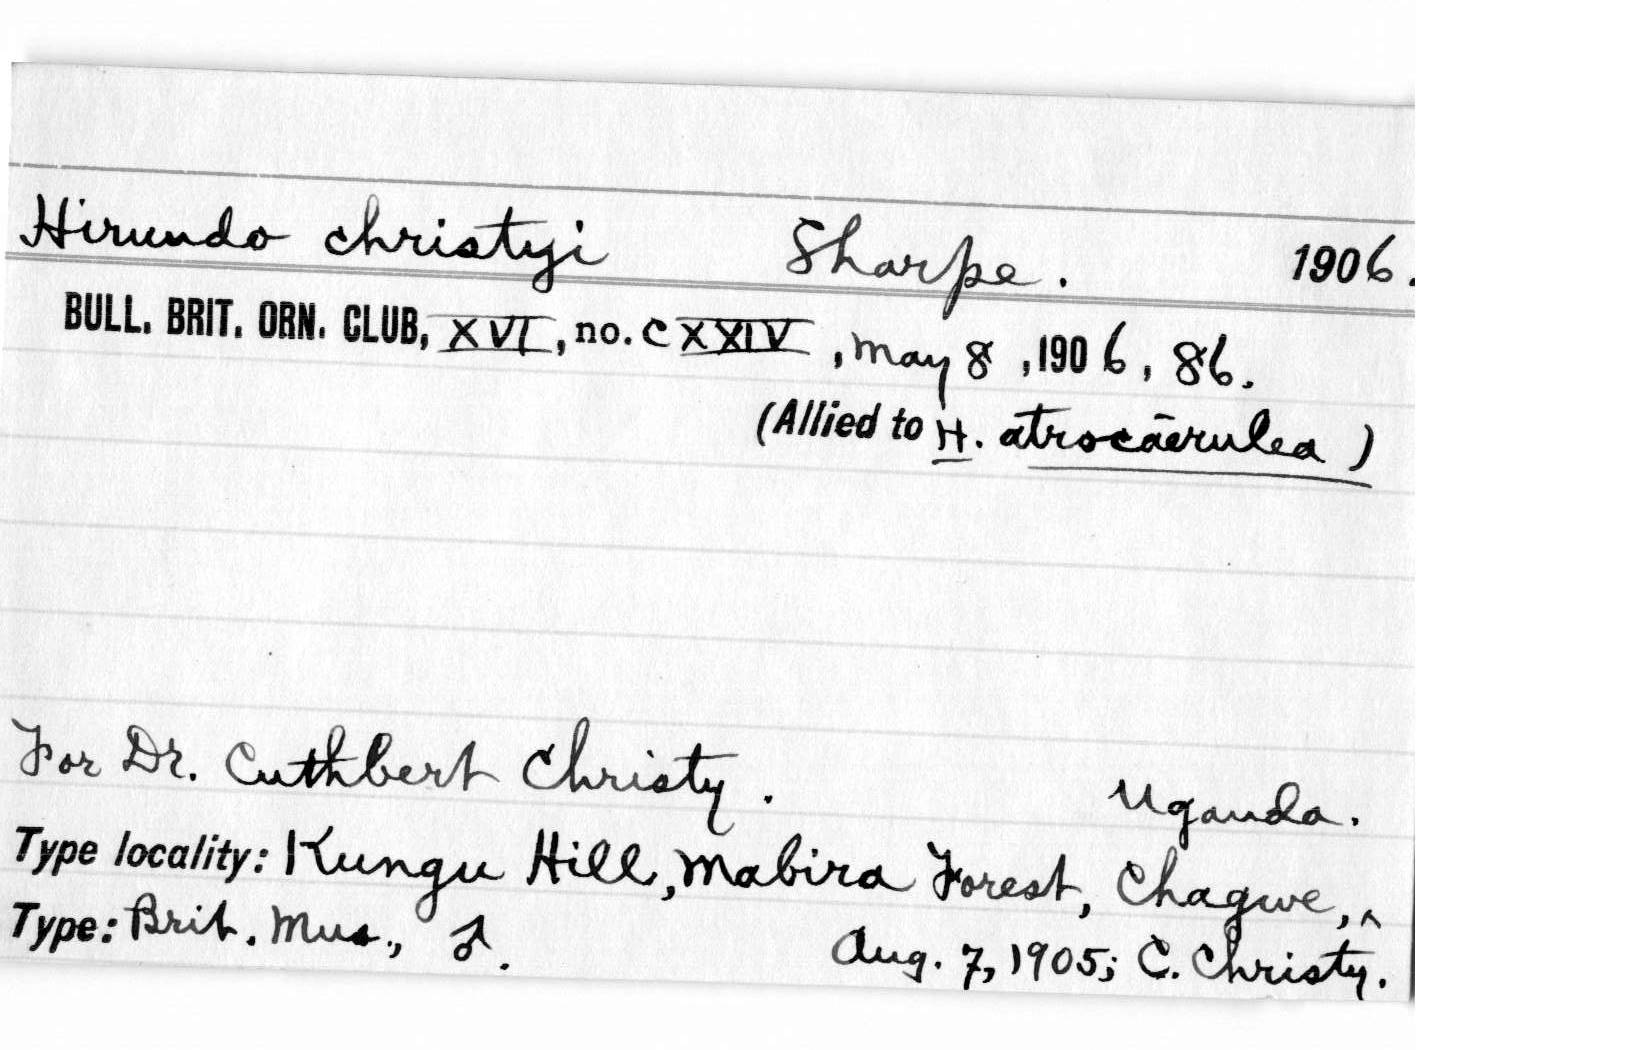 Hirundo christyi Sharpe. 1906.
BULL. BRIT. ORN. CLUB, XVI, no. CXXIV, May 8, 1906, 86.
(Allied to H. atrocāerulea)
For Dr. Cuthbert Christy.
Uganda.
Type locality: Kungu Hill, Mabira Forest, Chagwe, ^
Type: Brit. Mus., ♂. Aug. 7, 1905; C. Christy.